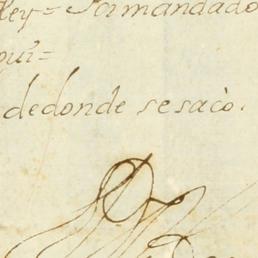 Rey = Por mandado
qui =
dedonde sesacò.